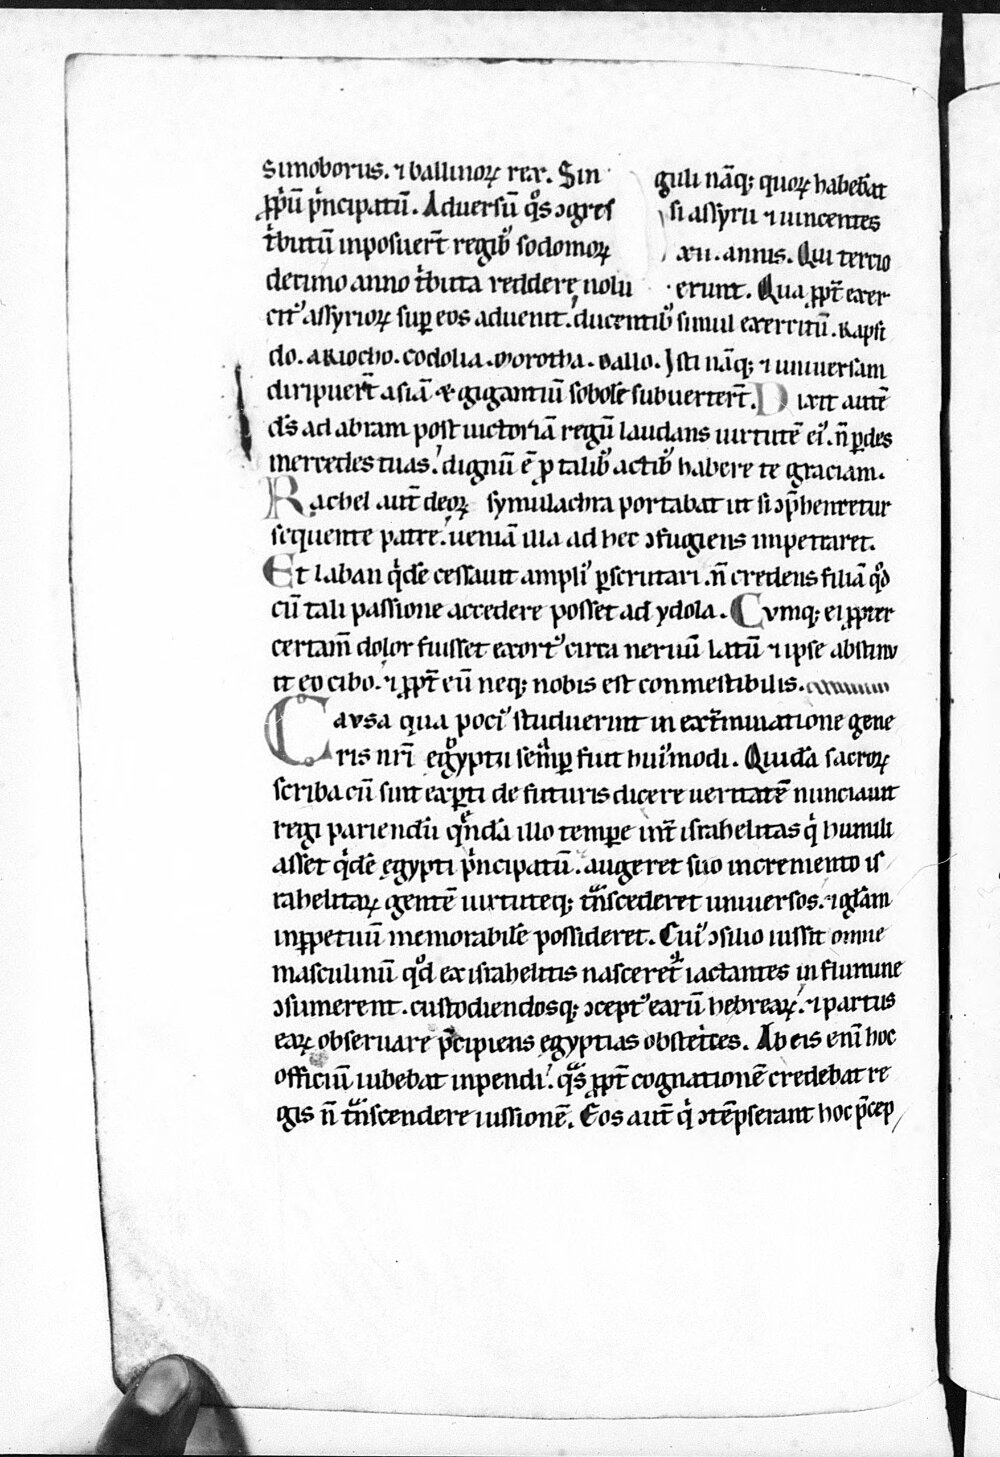 Simoborus. ⁊ ballinoꝝ rex. Sin guli nāq; quoꝝ habebāt
ꝓpͥū pͥncipatū. Aduersū qͦs ↄgres si assyrii ⁊ uincentes
tͥbutū inposuerт̄ regibꝰ sodomoꝝ xii. annis. Qui tercio
decimo anno tͥbuta reddere nolu erunt. Qua ꝓpt̄ exer
citꝰ assyrioꝝ suꝑ eos aduenit. ducentibꝰ simul exercitū. Rapsi
do. ariocho. codolia. Morotha. Ballo. Isti nāq; ⁊ uniuersam
diripuer̄t asiā & gigantiū sobolē subuerter̄t. Dixit autē
ds̄ ad abram post uictoriā regū laudans uirtutē eiꝰ. n̄ ꝑdes
mercedes tuas. dignū ē ꝓ talibꝰ actibꝰ habere te graciam.
Rachel aut̄ deoꝝ symulachra portabat ut si ↄp̄henretur
sequente patre. ueniā illa ad hec ↄfugiens inpetraret.
Et laban qͥdē cessauit ampliꝰ ꝑscrutari. n̄ credens filiā qͦd
cū tali passione accedere posset ad ydola. Cvmq; ei ꝓpter
certam̄ dolor fuisset exortꝰ circa neruū latū ⁊ ipse abstinu
it eo cibo. ⁊ ꝓpt̄ eū neq; nobis est conmestibilis.
Cavsa qua pociꝰ studuerunt in ext̄minatione gene
ris nr̄i egyptii semꝑ fuit huiꝰmodi. Quidā sacroꝝ
scriba cū sint exꝑti de futuris dicere ueritatē nunciauit
regi pariendū qͤndā illo tempe int̄ israhelitas qͥ humili
asset qͥdē egypti pͥncipatū. augeret suo incremento is
rahelitaꝝ gentē uirtuteq; tͣnscederet uniuersos. ⁊ gl̄am
inꝑpetuū memorabilē possideret. Cuiꝰ ↄsilio iussit omne
masculinū qͦd ex israhelitis nasceretͬ iactantes in flumine
ↄsumerent. custodiendosq; ↄceptꝰ earū hebreaꝝ. ⁊ partus
eaꝝ obseruare p̄cipiens egyptias obstetͥces. Ab eis enī hoc
officiū iubebat inpendi. qͣs ꝓpt̄ cognationē credebat re
gis n̄ tͣnscendere iussionē. Eos aut̄ qͥ ↄtēpserant hoc p̄cep